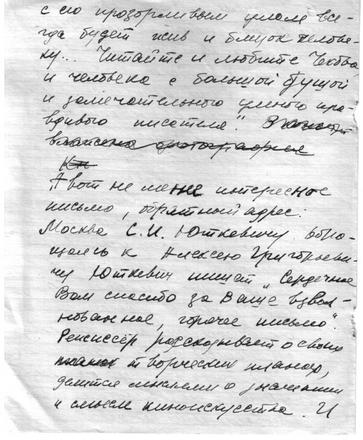 с его прозорливым умом все-
гда будет жив и близок челове-
ку... Читайте и любите Чехова
и человека с большой душой
и замечательного умного пра-
вдивого писателя".
А вот не менее интересное
письмо, обратный адрес:
Москва С.И. Юткевичу обра-
щаясь к Алексею Григорьеви-
чу Юткевич пишет „Сердечное
Вам спасибо за Ваше взвол-
нованное, горячее письмо"
Режиссёр рассказывает о своих
творческих планах,
делится мыслями о значении
и смысле киноискусства. И